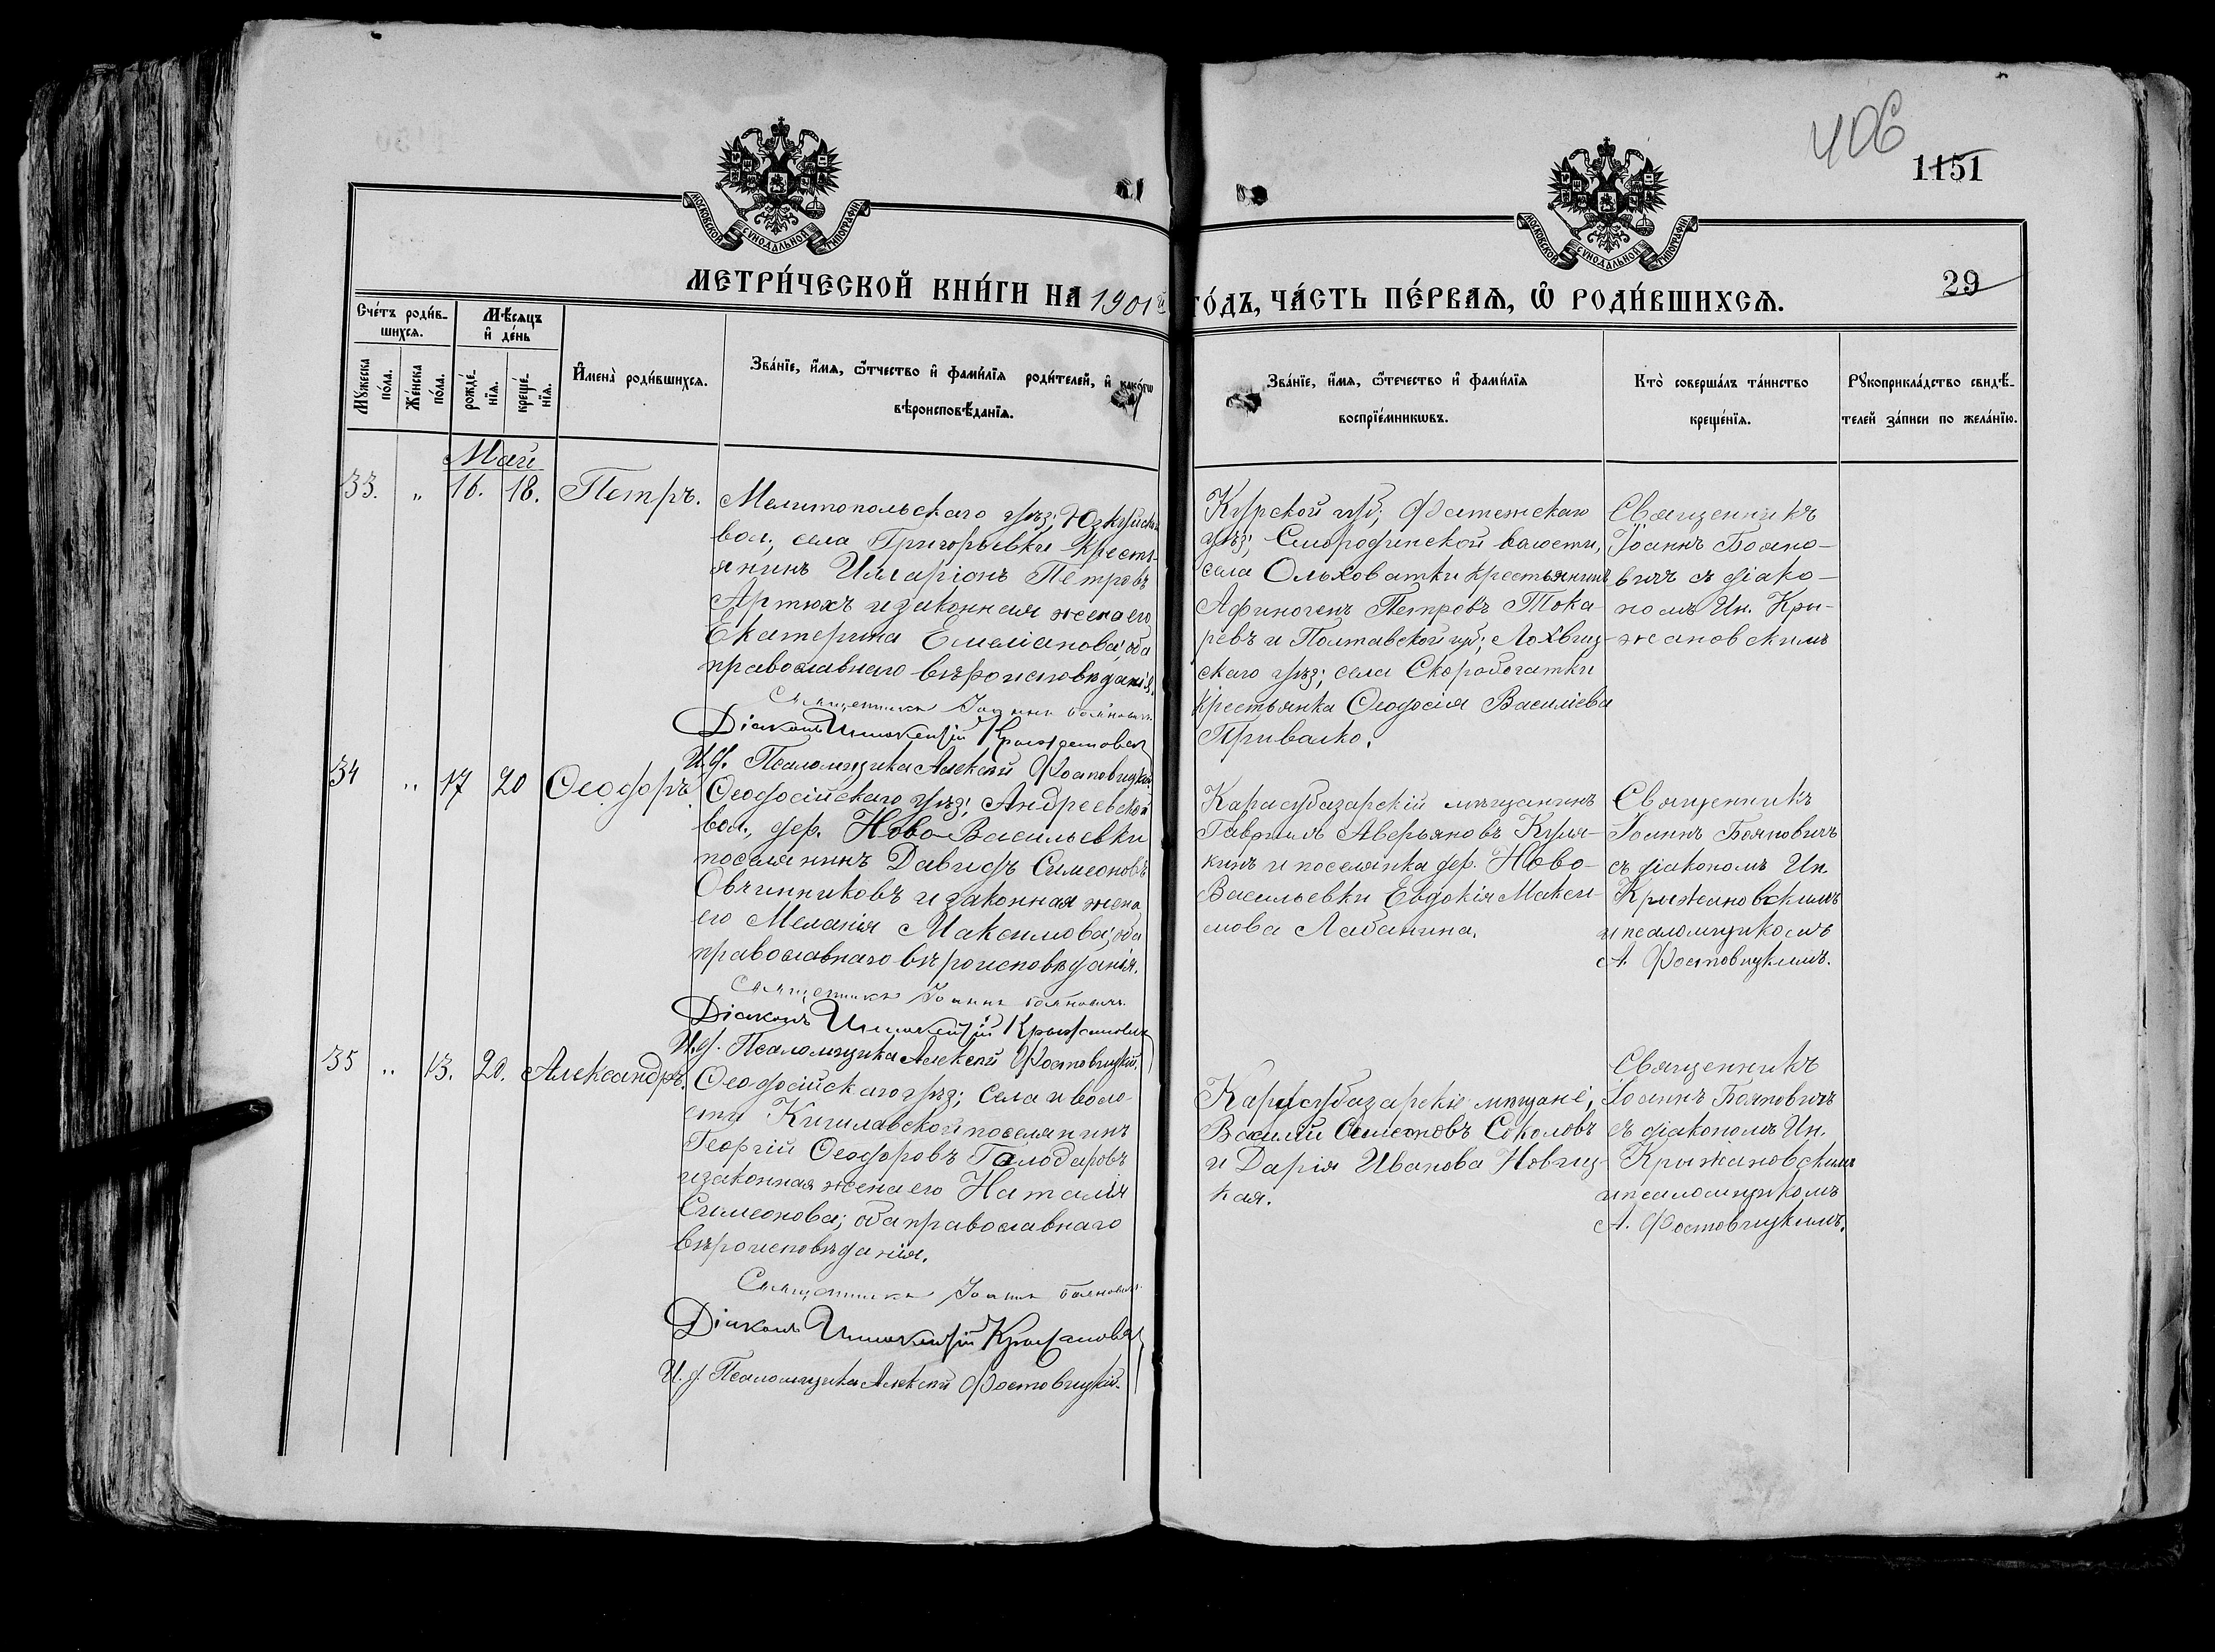 406
1151
29
МОСКОВСКОЙ СѴНОДАЛЬНОЙ ТИПОГРАФІИ
МОСКОВСКОЙ СѴНОДАЛЬНОЙ ТИПОГРАФІИ
МЕТРИ́ЧЕСКОЙ КНИ́ГИ НА 1901й ГО́ДЪ, ЧА́СТЬ ПЕ́РВАѦ, Ѡ҆ РОДИ́ВШИХСѦ.
Сче́тъ роди́в-
шихсѧ.
Мѣ́сѧцъ
и҆ де́нь
Мꙋ́жеска
по́ла.
Же́нска
по́ла.
рожде́-
нїѧ.
креще́-
нїѧ.
И҆мена̀ роди́вшихсѧ.
Зва́нїе, и҆́мѧ, ѻ҆́тчество и҆ фами́лїѧ роди́телей, и҆ како́гѡ
вѣроисповѣ́данїѧ.
Зва́нїе, и҆́мѧ, ѻ҆те́чество и҆ фами́лїѧ
воспрїе́мникѡвъ.
Кто̀ соверша́лъ та́инство
креще́нїѧ.
Рꙋкоприкла́дство свидѣ́-
телей за́писи по жела́нїю.
Май
33. „ 16. 18. Петръ.
Мелитопольскаго уѣз; Юзкуйской
вол., села Григорьевки крестья-
янинъ Илларіонъ Петровъ
Артюхъ и законная жена его
Екатерина Емеліанова; оба
православнаго вѣроисповѣданія.
Священникъ Іоаннъ Бояновичъ
Діаконъ Иннокентій Крыжановскій
И. д. Псаломщика Алексѣй Фостовицкій.
Курской губ; Фатежскаго
уѣз; Смородинской волости,
села Ольховатки крестьянинъ
Афиногенъ Петровъ Тока-
ревъ и Полтавской губ; Лохвиц-
скаго уѣз; села Скоробогатки
крестьянка Ѳеодосія Василіева
Привалко.
Священникъ
Іоаннъ Бояно-
вичъ съ діако-
номъ Ин. Кры-
жановскимъ
34 „ 17 20 Ѳеодоръ
Ѳеодосійскаго уѣз; Андреевской
вол., дер. Ново-Васильевки
поселянинъ Давидъ Симеоновъ
Овчинниковъ и законная жена
его Меланія Максимова; оба
православнаго вѣроисповѣданія.
Священникъ Іоаннъ Бояновичъ
Діаконъ Иннокентій Крыжановскій
И. д. Псаломщика Алексѣй Фостовицкій.
Карасубазарскій мѣщанинъ
Гавріилъ Аверьяновъ Куля-
кинъ и поселянка дер. Ново-
Васильевки Евдокія Макси-
мова Лабанина.
Священникъ
Іоаннъ Бояновичъ
съ діакономъ Ин.
Крыжановскимъ
и псаломщикомъ
А. Фостовицкимъ.
35 „ 13. 20. Александръ.
Ѳеодосійскаго уѣз; села и воло-
сти Кишлавской поселянинъ
Георгій Ѳеодоровъ Галодаровъ
и законная жена его Наталія
Симеонова; оба православнаго
вѣроисповѣданія.
Священникъ Іоаннъ Бояновичъ
Діаконъ Иннокентій Крыжановскій
И. д. Псаломщика Алексѣй Фостовицкій.
Карасубазарскіе мѣщане;
Василій Симеоновъ Соколовъ
и Дарія Иванова Новиц-
кая.
Священникъ
Іоаннъ Бояновичъ
съ діакономъ Ин.
Крыжановскимъ
и псаломщикомъ
А. Фостовицкимъ.